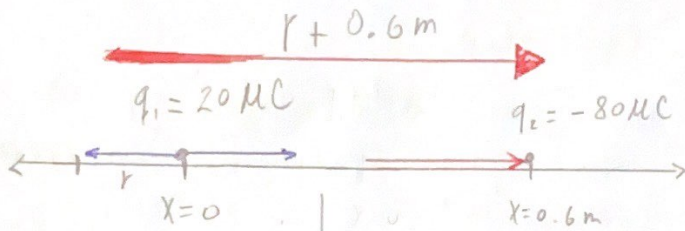 r + 0.6 m
q₁ = 20 µC
q₂ = -80 µC
r
X=0
X=0.6 m